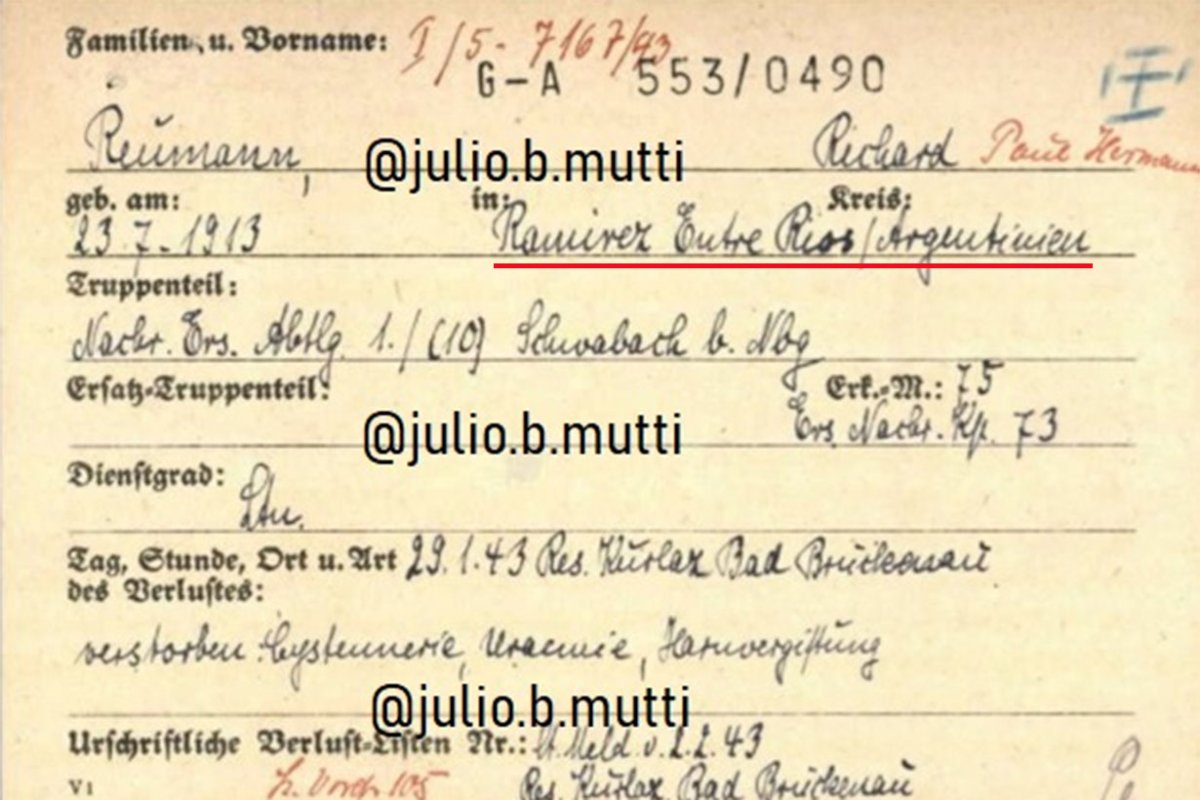 Familien- u. Vorname: I/5- 7167/93
G-A 553/0490
Reumann, @julio.b.mutti Richard Paul Hermann
geb. am: in: Kreis:
23.7.1913 Ramirez Entre Rios/Argentinien
Truppenteil:
Nachr. Ers. Abtlg. 1./(10) Schwabach b. Nbg
Ersatz-Truppenteil: Erk.-M.: 75
@julio.b.mutti Ers. Nachr. Kp. 73
Dienstgrad:
Ltn.
Tag, Stunde, Ort u. Art 29.1.43 Res. Kurlaz Bad Brückenau
des Verlustes:
verstorben Uraemie, Harnvergiftung
@julio.b.mutti
Urschriftliche Verlust-Listen Nr.: lt. Meld. v. 2.2.43
V1 Res. Kurlaz Bad Brückenau